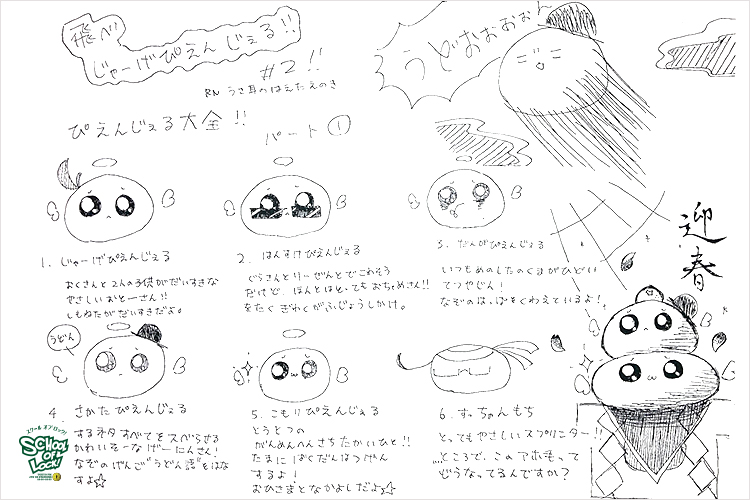 飛べ
じゃーげぴえんじぇる!!
#2!!
RN うさ耳のはえたえのき
うどおおおぉん
ぴえんじぇる大全!!
パート①
1. じゃーげぴえんじぇる
おくさんと2人の子供がだいすきな
やさしいおとーさん!!
しもねたがだいすきだよ。
2. はんすけぴえんじぇる
ぐらさんとりーぜんとでこわそう
だけど、ほんとはと、ても おちゃめさん!!
をたくぎわくがふじょうしかけ。
3. だんがぴえんじぇる
いつもめのしたのくまがひどい
てつやじん!
なぞのは、ぱをくわえているよ!
うどん
4. さかたぴえんじぇる
するネタすべてをスベらせる
かわいそーなげーにんさん!
なぞのげんご"うどん語"をはな
すよ☆
5. こもりぴえんじぇる
とうとつの
がんめんへんさちたかいひと!!
たまにばくだんはつげん
するよ!
おひさまとなかよしだよ☆
6. すっちゃんもち
とってもやさしいスプリンター!!
...ところで、このアホ毛って
どうなってるんですか?
迎春
スクール オブ ロック!
SCHOOL
OF
LOCK!